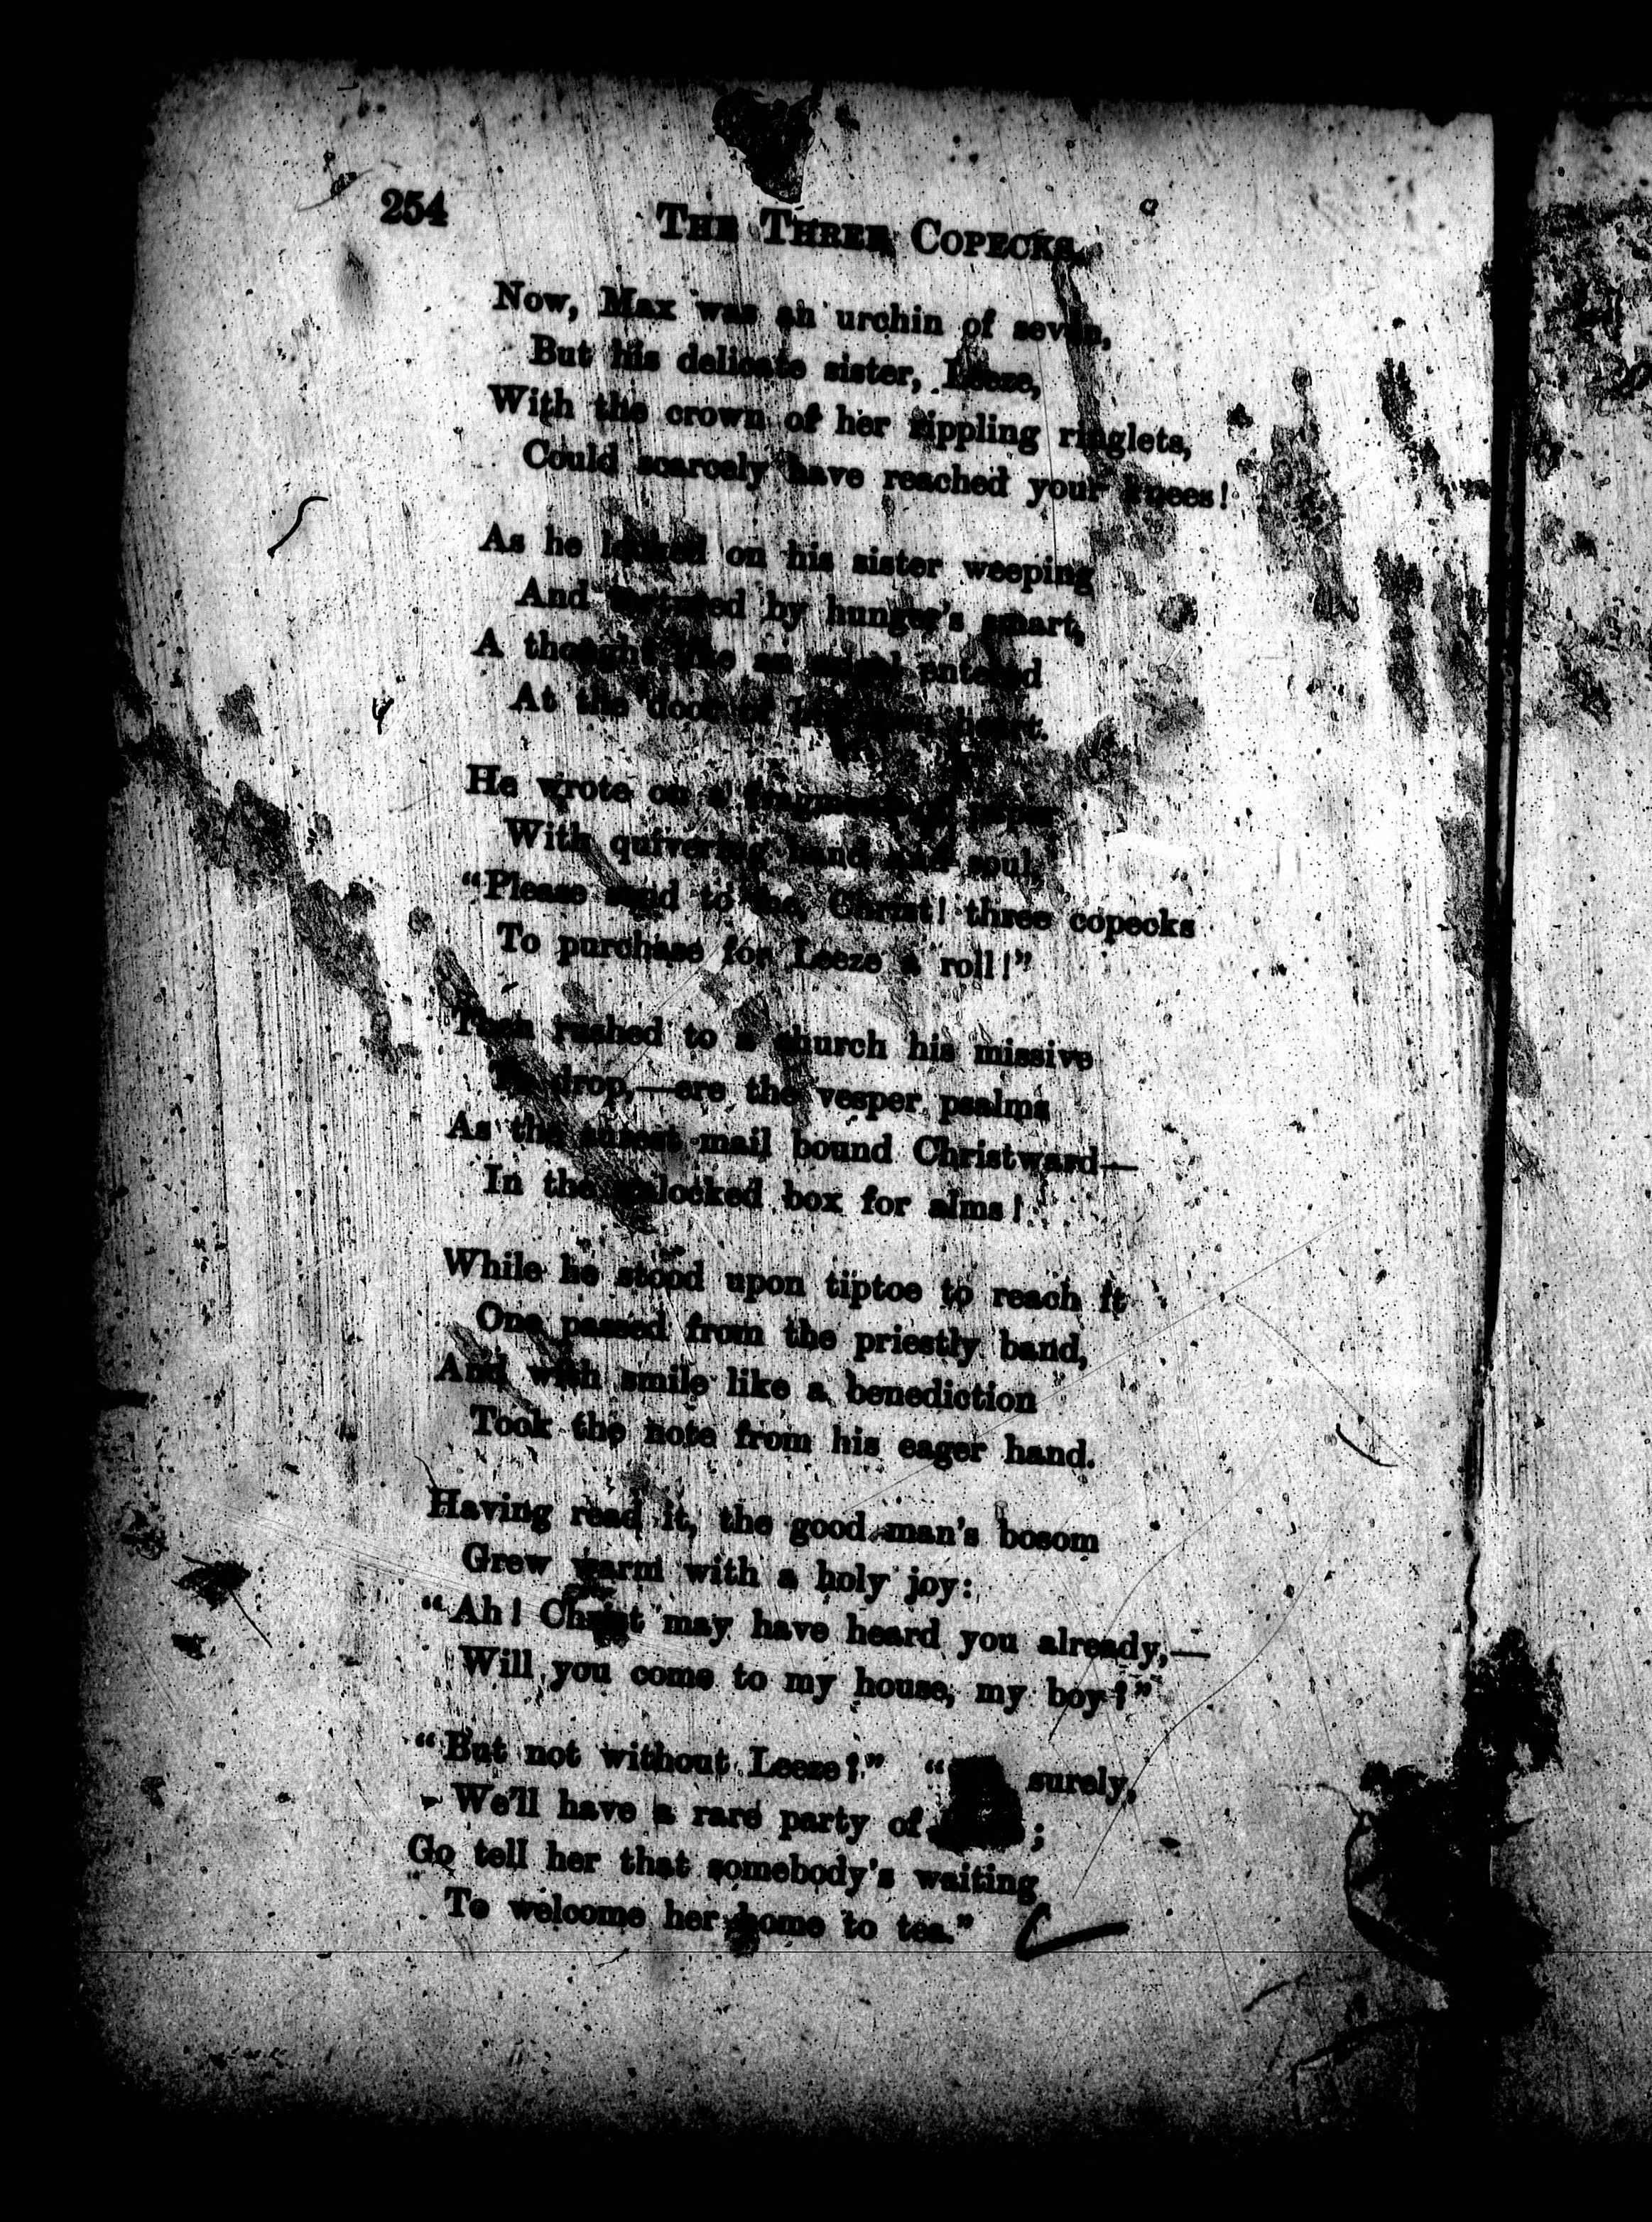 254
THE THREE COPECKS.
Now, Max was an urchin of seven,
But his delicate sister, Leeze,
With the crown of her rippling ringlets,
Could scarcely have reached your knees!
As he looked on his sister weeping
And tortured by hunger's smart,
A thought like an angel entered
At the door of his heart.
He wrote on a fragment of paper
With quivering hand and soul,
"Please send to me, Christ! three copecks
To purchase for Leeze a roll!"
Then rushed to a church his missive
To drop,—ere the vesper psalms
As the surest mail bound Christward—
In the unlocked box for alms!
While he stood upon tiptoe to reach it
One passed from the priestly band,
And with smile like a benediction
Took the note from his eager hand.
Having read it, the good man's bosom
Grew warm with a holy joy:
"Ah! Christ may have heard you already,—
Will you come to my house, my boy?"
"But not without Leeze?" " surely,
We'll have a rare party of ;
Go tell her that somebody's waiting
To welcome her home to tea."